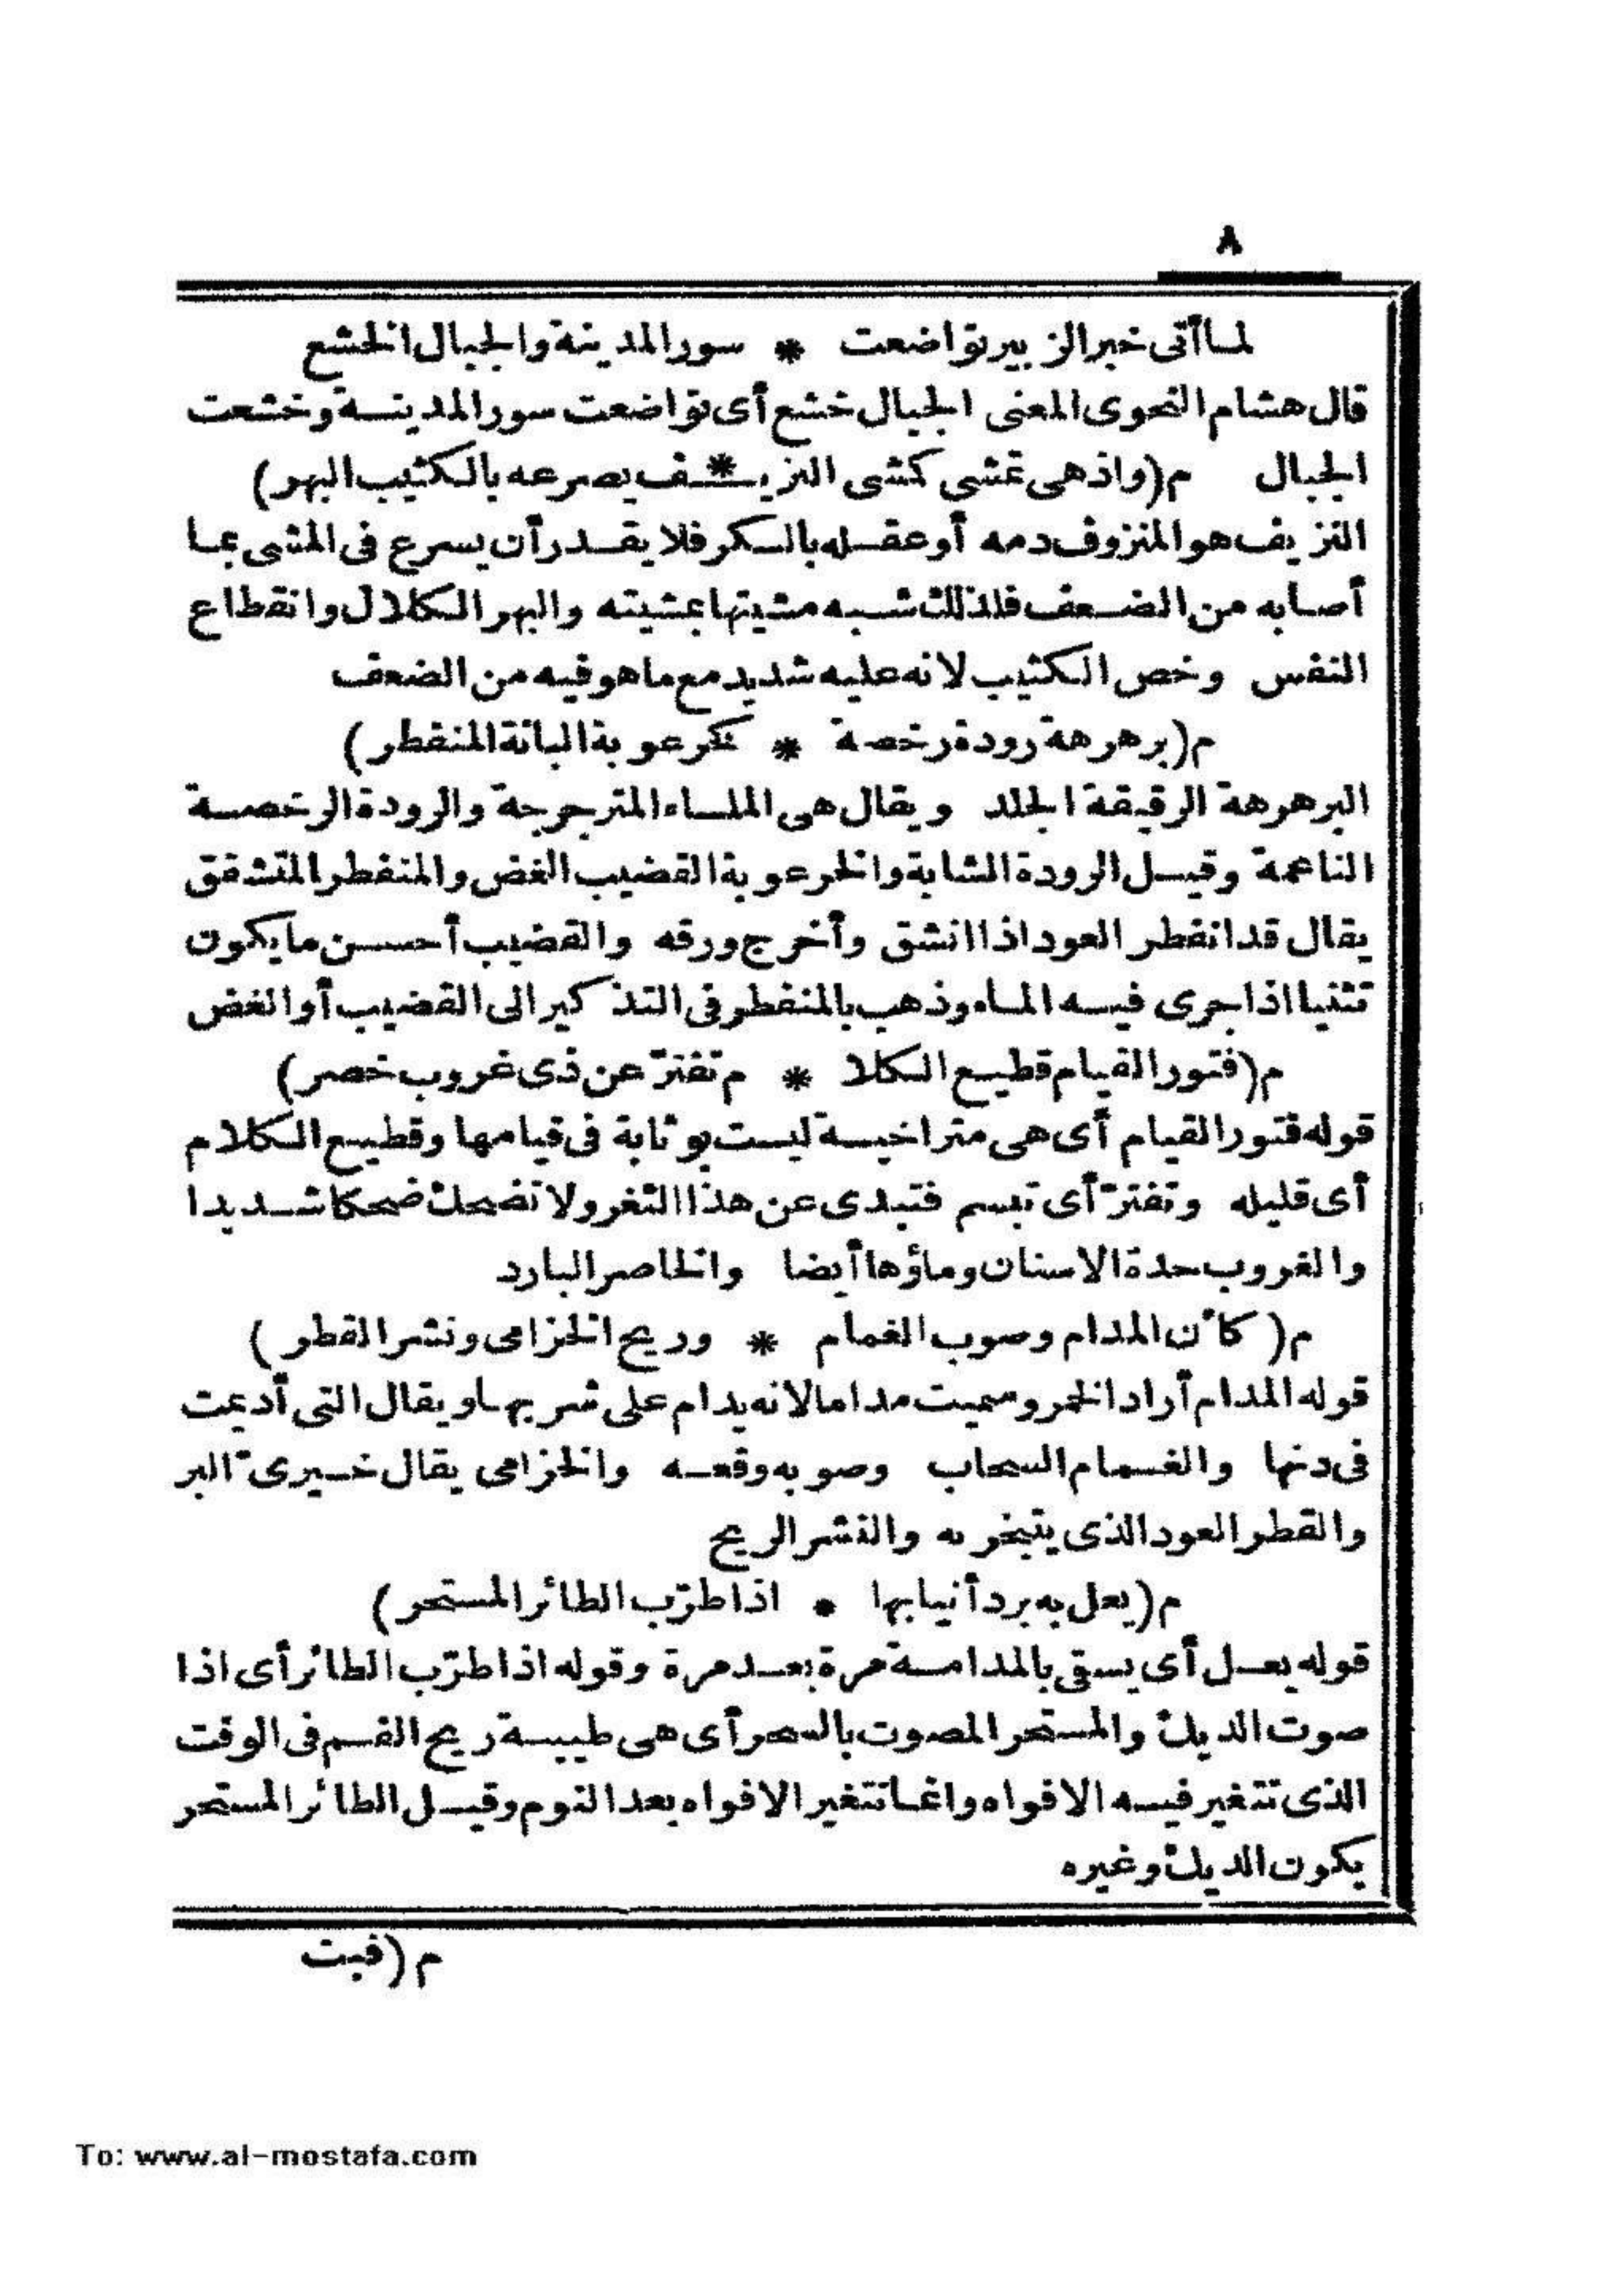 ٨
لما أتى خبر الزبير تواضعت * سور المدينة والجبال الخشع
قال هشام النحوى المعنى الجبال خشع أى تواضعت سور المدينة وخشعت
الجبال م (واذ هى تمشى كمشى النزيـ * ـف يصرعه بالكثيب البهر)
النزيف هو المنزوف دمه أو عقله بالسكر فلا يقدر أن يسرع فى المشى بما
أصابه من الضعف فلذلك شبه مشيتها بمشيته والبهر الكلال وانقطاع
النفس وخص الكثيب لانه عليه شديد مع ما هو فيه من الضعف
م (برهرهة رودة رخصة * كخرعوبة البانة المنفطر)
البرهرهة الرقيقة الجلد ويقال هى الملساء المترجرجة والرودة الرخصة
الناعمة وقيل الرودة الشابة والخرعوبة القضيب الغض والمنفطر المتشقق
يقال قد انفطر العود اذا انشق وأخرج ورقه والقضيب أحسن ما يكون
تثنيا اذا جرى فيه الماء وذهب بالمنفطر فى التذكير الى القضيب أو الغض
م (فتور القيام قطيع الكلا * م تفترّ عن ذى غروب خصر)
قوله فتور القيام أى هى متراخية ليست بوثابة فى قيامها وقطيع الكلام
أى قليله وتفترّ أى تبسم فتبدى عن هذا الثغر ولا تضحك ضحكا شديدا
والغروب حدة الاسنان وماؤها أيضا والخاصر البارد
م (كأن المدام وصوب الغمام * وريح الخزامى ونشر القطر)
قوله المدام أراد الخمر وسميت مداما لانه يدام على شربها ويقال التى أديمت
فى دنها والغمام السحاب وصوبه وقعه والخزامى يقال خيرىّ البر
والقطر العود الذى يتبخر به والنشر الريح
م (يعل به برد أنيابها * اذا طرّب الطائر المستحر)
قوله يعل أى يسقى بالمدامة مرة بعد مرة وقوله اذا طرّب الطائر أى اذا
صوت الديك والمستحر المصوت بالسحر أى هى طيبة ريح الفم فى الوقت
الذى تتغير فيه الافواه وانما تتغير الافواه بعد النوم وقيل الطائر المستحر
يكون الديك وغيره
م (فبت
To: www.al-mostafa.com